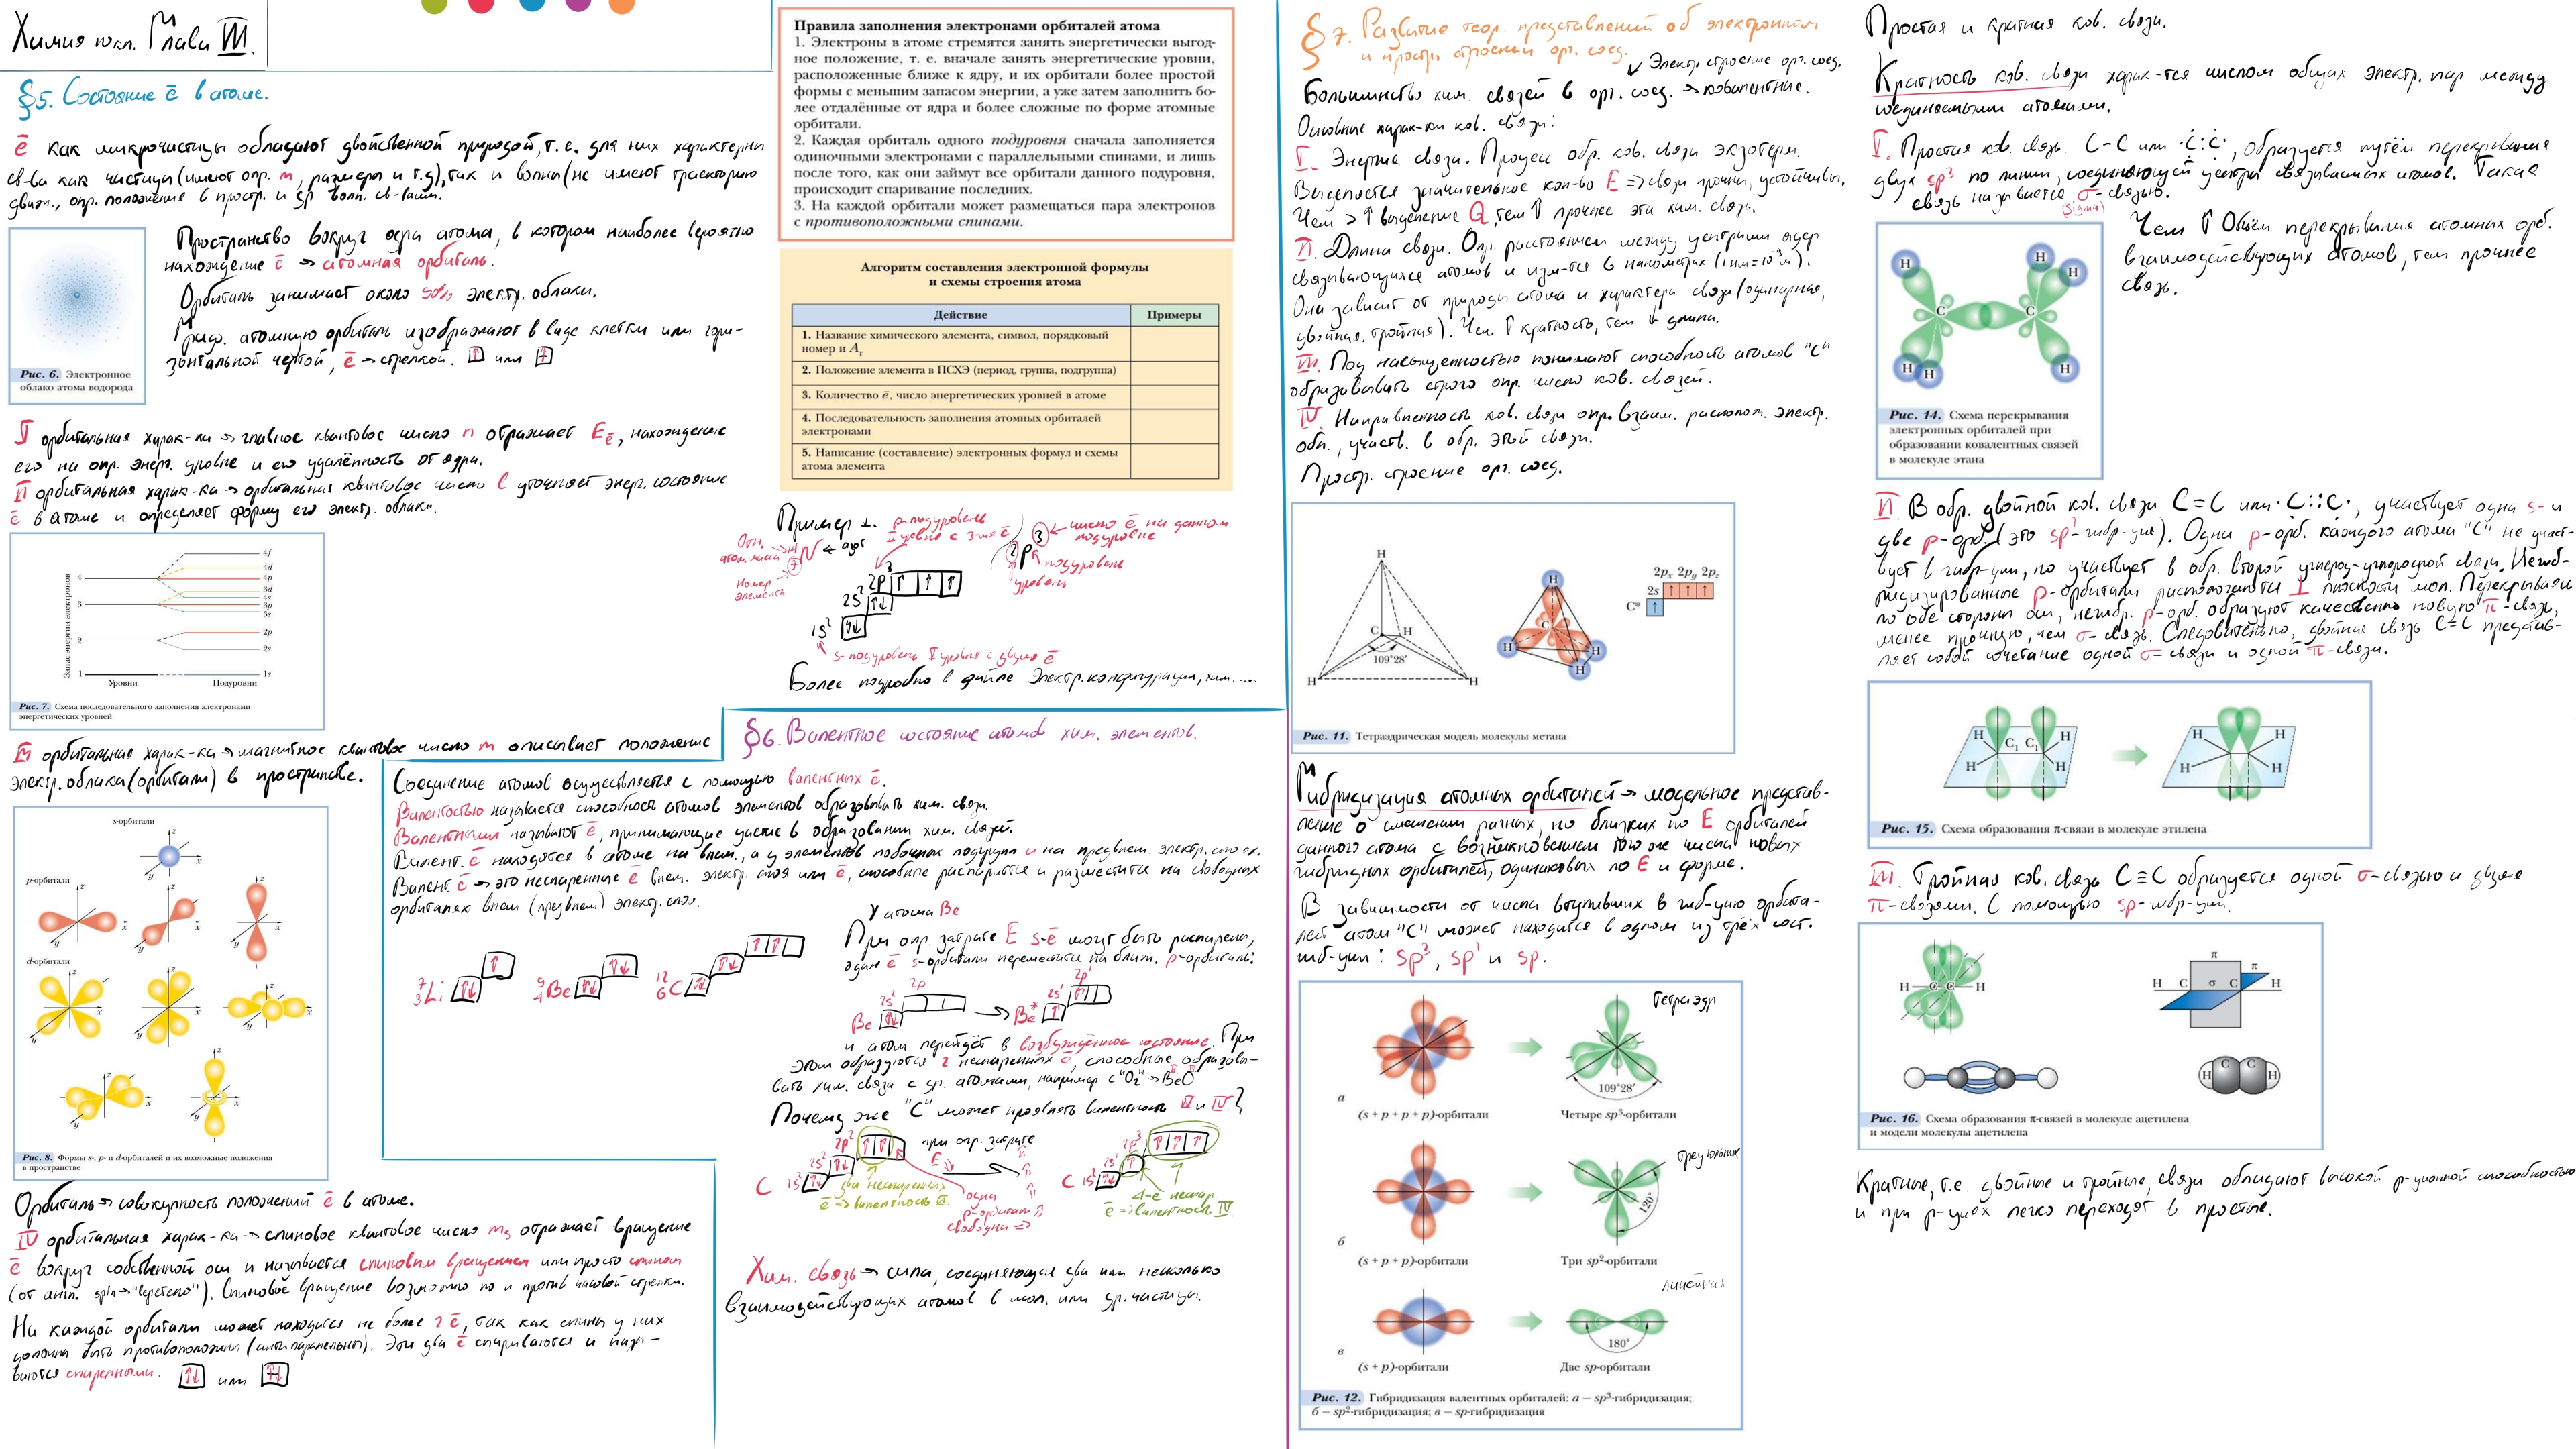 Химия 10 кл. Глава III.
§5. Состояние ē в атоме.
ē как микрочастицы обладают двойственной природой, т.е. для них характерны
св-ва как частицы (имеют опр. m, размеры и т.д), так и волны (не имеют траекторию
движ., опр. положение в простр. и др. волн. св-вами.
Пространство вокруг ядра атома, в котором наиболее вероятно
нахождение ē → атомная орбиталь.
Орбиталь занимает около 90% электр. облака.
атомную орбиталь изображают в виде клетки или гори-
зонтальной чертой, ē → стрелкой. ↑ или
Рис. 6. Электронное
облако атома водорода
I орбитальная харак-ка → главное квантовое число n отражает Eē, нахождение
его на опр. энерг. уровне и его удалённость от ядра.
II орбитальная харак-ка → орбитальное квантовое число l уточняет энерг. состояние
ē в атоме и определяет форму его электр. облака.
Запас энергии электронов
4
3
2
1
4f
4d
4p
3d
4s
3p
3s
2p
2s
1s
Уровни Подуровни
Рис. 7. Схема последовательного заполнения электронами
энергетических уровней
III орбитальная харак-ка → магнитное квантовое число m описывает положение
электр. облака (орбитали) в пространстве.
s-орбитали
p-орбитали
d-орбитали
Рис. 8. Формы s-, p- и d-орбиталей и их возможные положения
в пространстве
Орбиталь → совокупность положений ē в атоме.
IV орбитальная харак-ка → спиновое квантовое число ms отражает вращение
ē вокруг собственной оси и называется спиновым вращением или просто спином
(от англ. spin → "веретено"). Спиновое вращение возможно по и против часовой стрелки.
На каждой орбитали может находится не более 2 ē, так как спины у них
должны быть противоположны (антипараллельны). Эти два ē спариваются и назы-
ваются спаренными. ↑↓ или ↑↓
Правила заполнения электронами орбиталей атома
1. Электроны в атоме стремятся занять энергетически выгод-
ное положение, т. е. вначале занять энергетические уровни,
расположенные ближе к ядру, и их орбитали более простой
формы с меньшим запасом энергии, а уже затем заполнить бо-
лее отдалённые от ядра и более сложные по форме атомные
орбитали.
2. Каждая орбиталь одного подуровня сначала заполняется
одиночными электронами с параллельными спинами, и лишь
после того, как они займут все орбитали данного подуровня,
происходит спаривание последних.
3. На каждой орбитали может размещаться пара электронов
с противоположными спинами.
Алгоритм составления электронной формулы
и схемы строения атома
Действие Примеры
1. Название химического элемента, символ, порядковый
номер и Ar
2. Положение элемента в ПСХЭ (период, группа, подгруппа)
3. Количество ē, число энергетических уровней в атоме
4. Последовательность заполнения атомных орбиталей
электронами
5. Написание (составление) электронных формул и схемы
атома элемента
Пример 1.
p-подуровень
II уровня с 3-мя ē
Отн.
атом. масса → 14
7 N ← азот
Номер
элемента
2p³ ← число ē на данном
подуровне
подуровень
уровень
2p³ ↑ ↑ ↑
2s² ↑↓
1s² ↑↓
s-подуровень I уровня с двумя ē
Более подробно в файле Электр. конфигурации, хим....
§6. Валентное состояние атомов хим. элементов.
Соединение атомов осуществляется с помощью валентных ē.
Валентностью называется способность атомов элементов образовывать хим. связи.
Валентными называют ē, принимающие участие в образовании хим. связей.
Валент. ē находятся в атоме на внеш., а у элементов побочных подгрупп и на предвнеш. электр. слоях.
Валент. ē → это неспаренные ē внеш. электр. слоя или ē, способные распарится и разместится на свободных
орбиталях внеш. (предвнеш) электр. слоя.
7 3 Li ↑↓ ↑
9 4 Be ↑↓ ↑↓
12 6 C ↑↓ ↑↓ ↑ ↑
У атома Be
При опр. затрате E s-ē могут быть распарены,
один ē s-орбитали переместится на ближ. p-орбиталь:
Be 2s² ↑↓ 2p → Be* 2s¹ ↑ 2p¹ ↑
и атом перейдёт в возбуждённое состояние. При
этом образуются 2 неспаренных ē, способные образовы-
вать хим. связи с др. атомами, например с "O₂" → BeO
Почему же "C" может проявлять валентность II и IV?
C 1s² ↑↓ 2s² ↑↓ 2p² ↑ ↑
при опр. затрате
E
два неспаренных
ē => валентность II.
одна
p-орбиталь
свободна =>
C 1s² ↑↓ 2s¹ ↑ 2p³ ↑ ↑ ↑
4-ē неспар.
ē => валентность IV.
Хим. связь → сила, соединяющая два или несколько
взаимодействующих атомов в мол. или др. частицы.
§7. Развитие теор. представлений об электронном
и простр. строении орг. соед.
↙ Электр. строение орг. соед.
Большинство хим. связей в орг. соед. → ковалентные.
Основные харак-ки ков. связи:
I. Энергия связи. Процесс обр. ков. связи экзотерм.
Выделяется значительное кол-во E => связи прочны, устойчивы.
Чем > ↑ выделение Q, тем ↑ прочнее эта хим. связь.
II. Длина связи. Опр. расстоянием между центрами ядер
связывающихся атомов и изм-тся в нанометрах (1 нм = 10⁻⁹ м).
Она зависит от природы атома и характера связи (одинарная,
двойная, тройная). Чем ↑ кратность, тем ↓ длина.
III. Под насыщенностью понимают способность атомов "C"
образовывать строго опр. число ков. связей.
IV. Направленность ков. связи опр. взаим. располож. электр.
обл., участв. в обр. этой связи.
Простр. строение орг. соед.
H
C H
109°28′
H H
H
C
H H
H
C*
2s
2px 2py 2pz
Рис. 11. Тетраэдрическая модель молекулы метана
Гибридизация атомных орбиталей → модельное представ-
ление о смешении разных, но близких по E орбиталей
данного атома с возникновением того же числа новых
гибридных орбиталей, одинаковых по E и форме.
В зависимости от числа вступивших в гиб-цию орбита-
лей атом "C" может находится в одном из трёх сост.
гиб-ции: sp³, sp² и sp.
Тетраэдр
109°28′
а
(s + p + p + p)-орбитали Четыре sp³-орбитали
треугольник
120°
б
(s + p + p)-орбитали Три sp²-орбитали
линейная
180°
в
(s + p)-орбитали Две sp-орбитали
Рис. 12. Гибридизация валентных орбиталей: а — sp³-гибридизация;
б — sp²-гибридизация; в — sp-гибридизация
Простая и кратная ков. связи.
Кратность ков. связи харак-тся числом общих электр. пар между
соединяемыми атомами.
I. Простая ков. связь C-C или ·C:C·, образуется путём перекрывания
двух sp³ по линии, соединяющей центры связываемых атомов. Такая
связь называется σ-связью.
(sigma)
Чем ↑ Объём перекрывания атомных орб.
взаимодействующих атомов, тем прочнее
связь.
H H H
C C
H H H
Рис. 14. Схема перекрывания
электронных орбиталей при
образовании ковалентных связей
в молекуле этана
II. В обр. двойной ков. связи C=C или ·C::C·, участвует одна s- и
две p-орб. (это sp²-гибр-ция). Одна p-орб. каждого атома "C" не участ-
вует в гибр-ции, но участвует в обр. второй углерод-углеродной связи. Негиб-
ридизированные p-орбитали располагаются ⊥ плоскости мол. Перекрываясь
по обе стороны оси, негибр. p-орб. образуют качественно новую π-связь,
менее прочную, чем σ-связь. Следовательно, двойная связь C=C представ-
ляет собой сочетание одной σ-связи и одной π-связи.
H C₁ C₁ H
H H
H H
H H
Рис. 15. Схема образования π-связи в молекуле этилена
III. Тройная ков. связь C≡C образуется одной σ-связью и двумя
π-связями. С помощью sp-гибр-ции.
H C C H
π
π
H C σ C H
H C C H
Рис. 16. Схема образования π-связей в молекуле ацетилена
и модели молекулы ацетилена
Кратные, т.е. двойные и тройные, связи обладают высокой р-ционной способностью
и при р-циях легко переходят в простые.